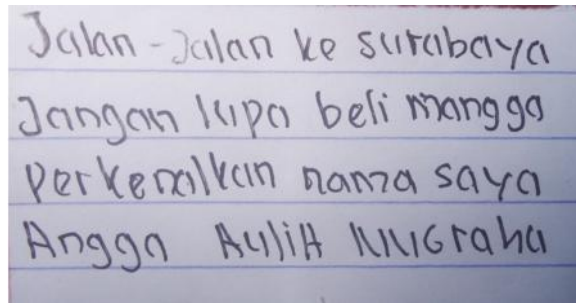 Jalan-Jalan ke surabaya
Jangan lupa beli mangga
Perkenalkan nama saya
Angga Aulia Nugraha